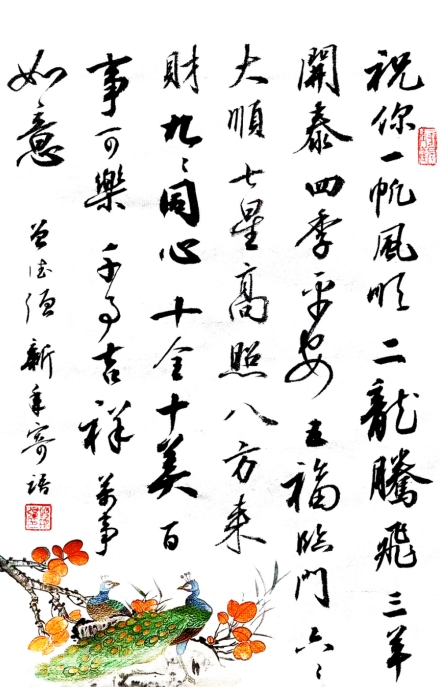 祝你一帆风顺二龍騰飛三羊
開泰四季平安五福臨門六〻
大順七星高照八方来
財九〻同心十全十美百
事可樂千事吉祥萬事
如意
新年寄語